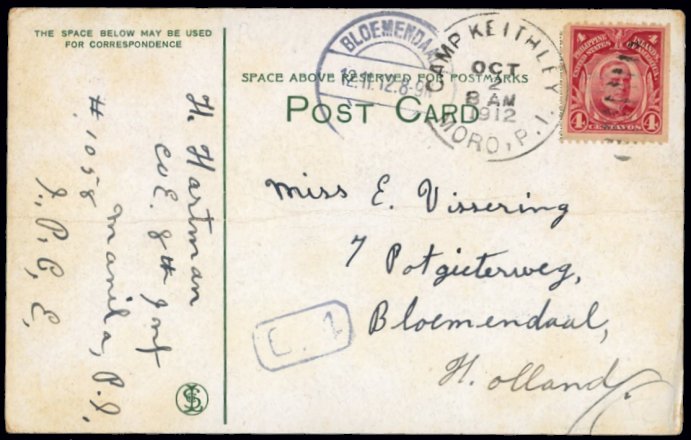 THE SPACE BELOW MAY BE USED
FOR CORRESPONDENCE
BLOEMENDAAL
12.11.12.8-9
CAMP KEITHLEY
OCT
2
8 AM
1912
MORO, P.I.
PHILIPPINE ISLANDS
UNITED STATES OF AMERICA
4 CENTAVOS 4
SPACE ABOVE RESERVED FOR POSTMARKS
POST CARD
H. Hartman
Co E. 8th Inf
Manila, P.I.
#1058
I, P, C, E,
Miss E. Vissering
7 Potgieterweg,
Bloemendaal,
Holland.
E. 1